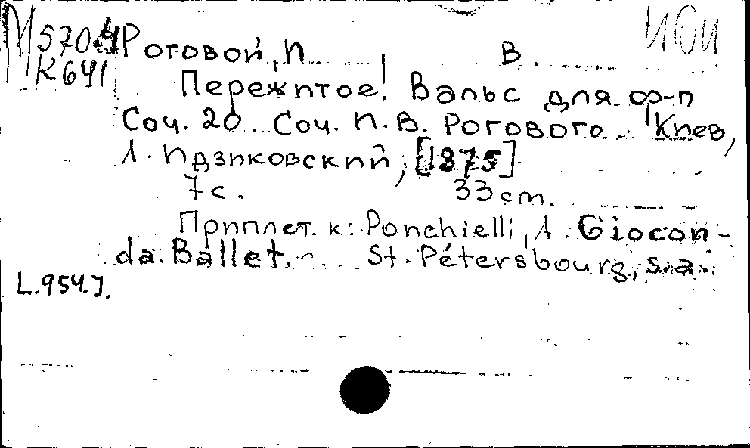 М 570.4
К 641
Роговой, П. В.
Пережитое! Вальс для ф-п
Соч. 20. Соч. П.В. Рогового. Киев,
Л. Идзиковский, [1875]
7 с. 33 cm.
Приплет. к: Ponchielli, A. Giocon-
da. Ballet. St. Pétersbourg, s.a.
L.954.J.